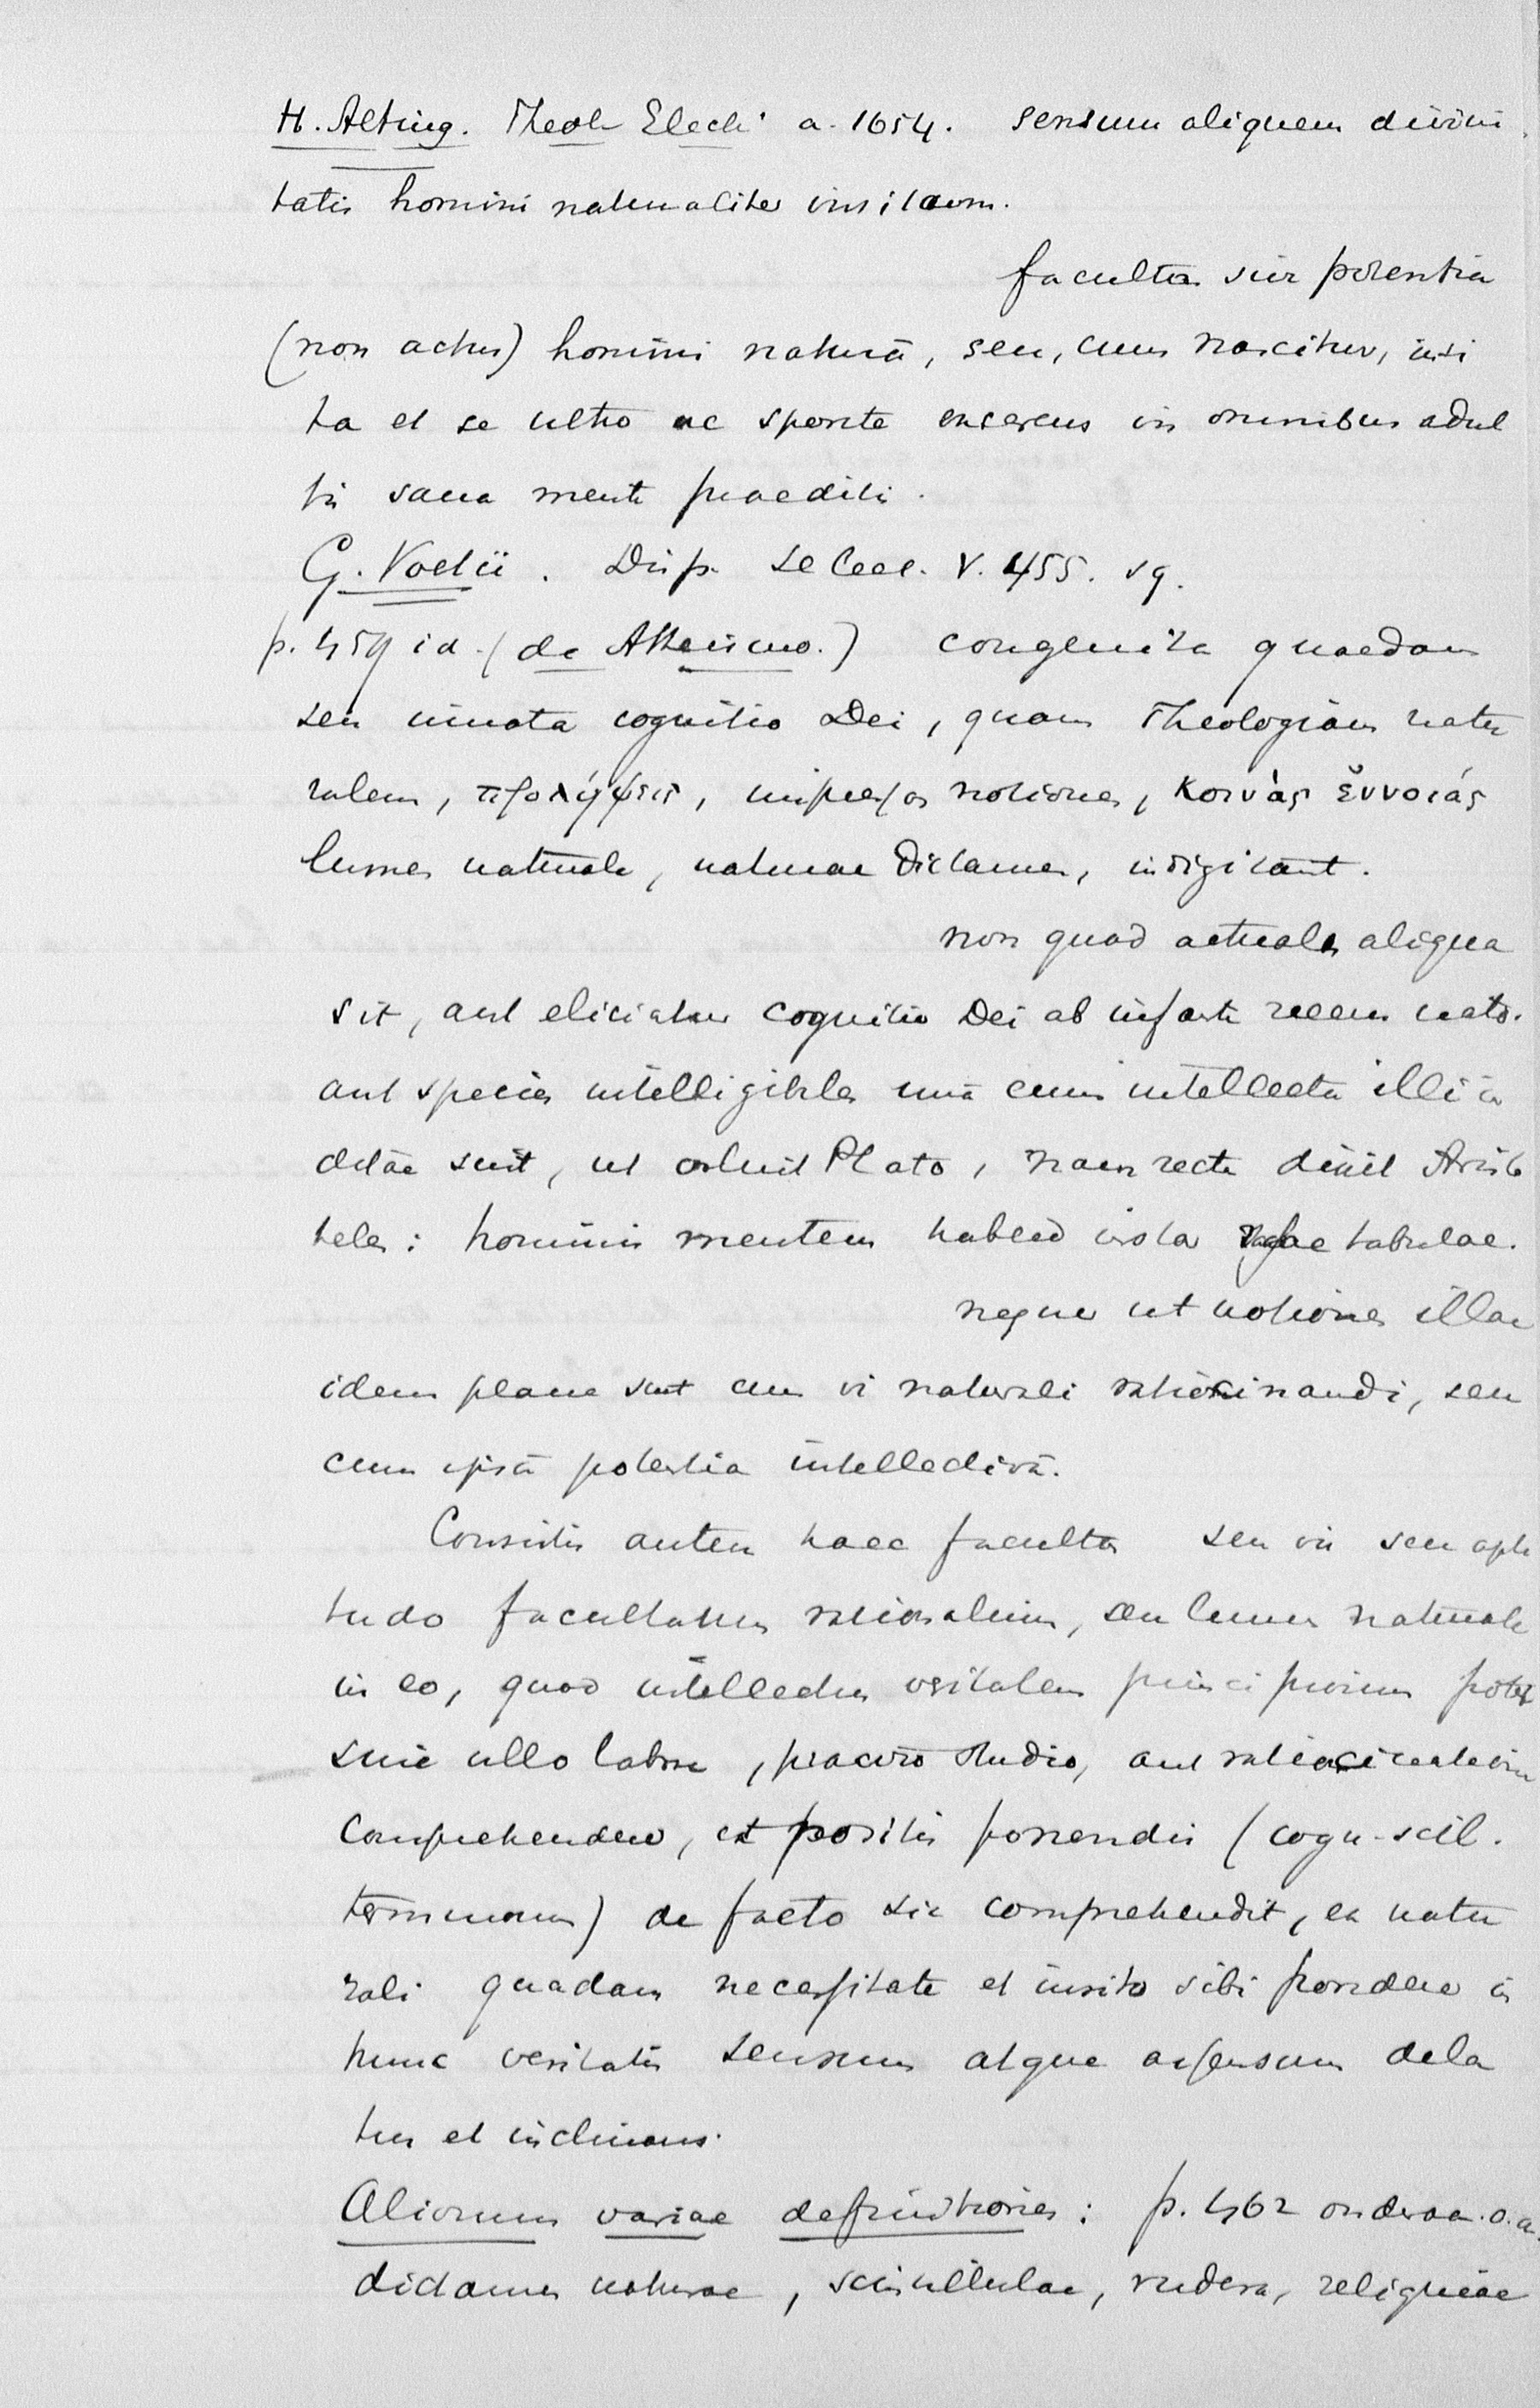 H. Alting. Theol Elech a. 1654. sensum aliquem divini
tatis homini naturaliter insitum.
facultas sive potentia
(non actus) homini naturā, seu, cum nascitur, insi
ta et se ultro ac sponte exserens in omnibus adul
tis sana mente praeditis.
G. Voetii. Disp. Select. V. 455. sq.
p. 459 id. (de Atheismo.) congenita quaedam
seu innata cognitio Dei, quam Theologiam natu
ralem, προλήψεις, impressas notiones, κοινὰς ἐννοιάς
lumen naturale, naturae dictamen, indigitant.
non quod actualis aliqua
sit, aut eliciatur cognitio Dei ab infante recens nato.
aut species intelligibiles unā cum intellectu illi in
ditae sunt, ut voluit Plato, nam recte dixit Aristo
teles: hominis mentem habere instar rasae tabulae.
neque ut notiones illae
idem plane sunt cum vi naturali ratiocinandi, seu
cum ipsā potentia intellectivā.
Consistit autem haec facultas seu vis seu apti
tudo facultatum rationalium, seu lumen naturale
in eo, quod intellectus veritatem principiorum potest
sine ullo labore, praevio studio, aut ratiocinatione
comprehendere, et positis ponendis (cogn. scil.
terminorum) de facto sic comprehendit, ex natu
rali quadam necessitate et insito sibi pondere in
hunc veritatis sensum atque assensum dela
tus et inclinans.
Aliorum variae definitiones: p. 462 onderaa. o. a.
dictamen naturae, scintillulae, rudera, reliquiae